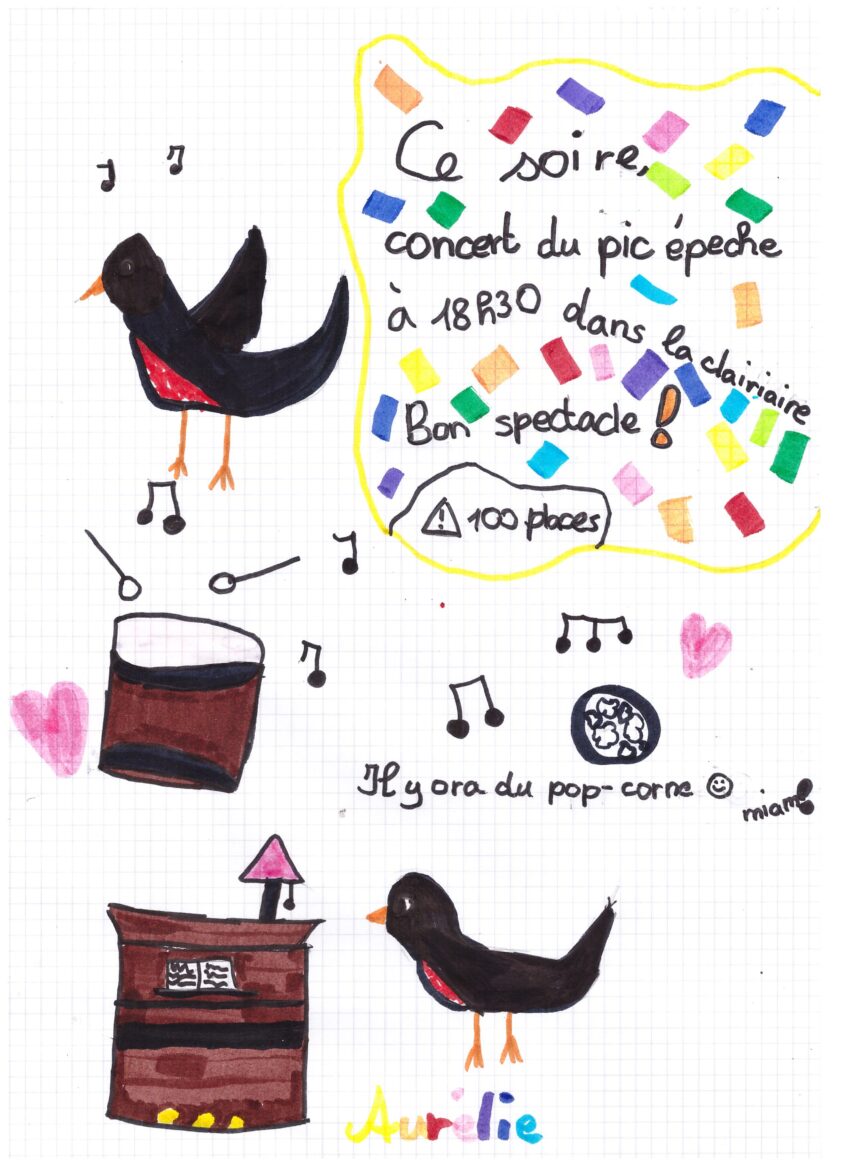 Ce soire,
concert du pic épeche
à 18h30 dans la clairiaire
Bon spectacle !
⚠ 100 places
Il y ora du pop-corne ☺ miam!
Aurélie